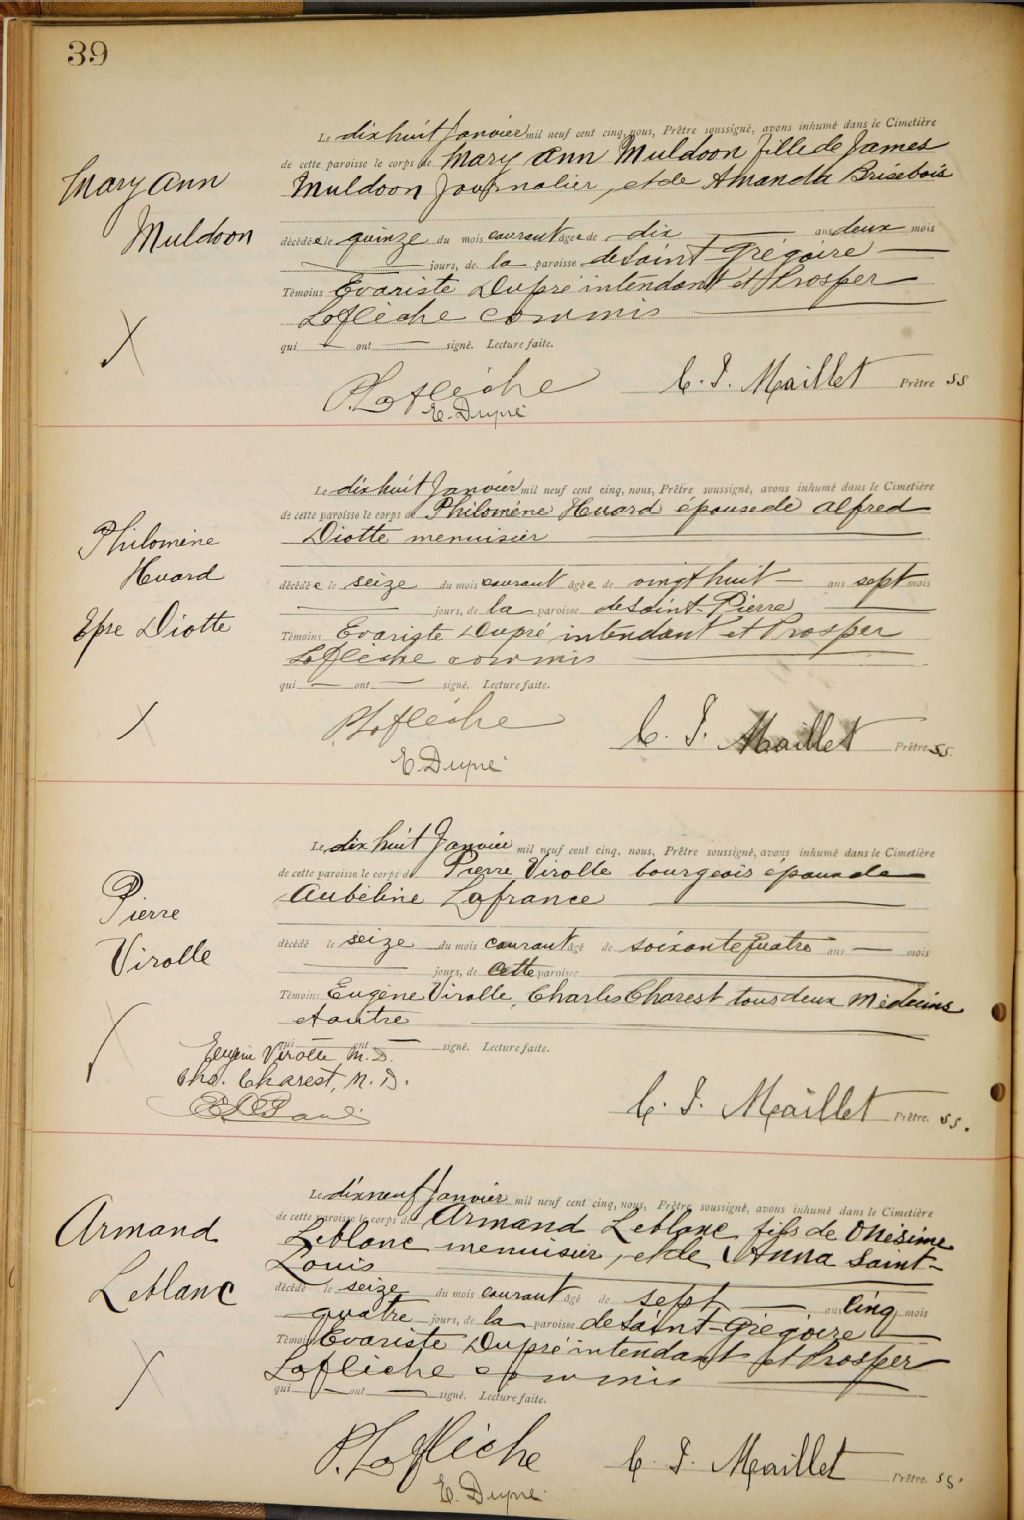 39
Mary Ann
Muldoon
Le dix huit Janvier mil neuf cent cinq, nous, Prêtre soussigné, avons inhumé dans le Cimetière
de cette paroisse le corps de Mary Ann Muldoon fille de James
Muldoon journalier, et de Amanda Brisebois
décédée le quinze du mois courant âgée de dix ans deux mois
jours, de la paroisse de Saint-Grégoire
Témoins Evariste Dupré intendant et Prosper
Laflèche commis
qui ont signé. Lecture faite.
P. Laflèche
E. Dupré
C. J. Maillet Prêtre SS
Philomène
Huard
Epse Diotte
Le dix huit Janvier mil neuf cent cinq, nous, Prêtre soussigné, avons inhumé dans le Cimetière
de cette paroisse le corps de Philomène Huard épouse de Alfred
Diotte menuisier
décédée le seize du mois courant âgée de vingt huit ans sept mois
jours, de la paroisse de Saint-Pierre
Témoins Evariste Dupré intendant et Prosper
Laflèche commis
qui ont signé. Lecture faite.
P. Laflèche
E. Dupré
C. J. Maillet Prêtre SS.
Pierre
Virolle
Le dix huit Janvier mil neuf cent cinq, nous, Prêtre soussigné, avons inhumé dans le Cimetière
de cette paroisse le corps de Pierre Virolle bourgeois époux de
Aubéline Lafrance
décédé le seize du mois courant âgé de soixante quatre ans mois
jours, de cette paroisse
Témoins Eugène Virolle, Charles Charest tous deux Médecins
et autre
qui ont signé. Lecture faite.
Eugène Virolle M. D.
Chs. Charest, M. D.
C. J. Maillet Prêtre. SS.
Armand
Leblanc
Le dix neuf Janvier mil neuf cent cinq, nous, Prêtre soussigné, avons inhumé dans le Cimetière
de cette paroisse le corps de Armand Leblanc fils de Onésime
Leblanc menuisier, et de Anna Saint-
Louis
décédé le seize du mois courant âgé de sept ans cinq mois
quatre jours, de la paroisse de Saint-Grégoire
Témoins Evariste Dupré intendant et Prosper
Laflèche commis
qui ont signé. Lecture faite.
P. Laflèche
E. Dupré
C. J. Maillet Prêtre. SS.